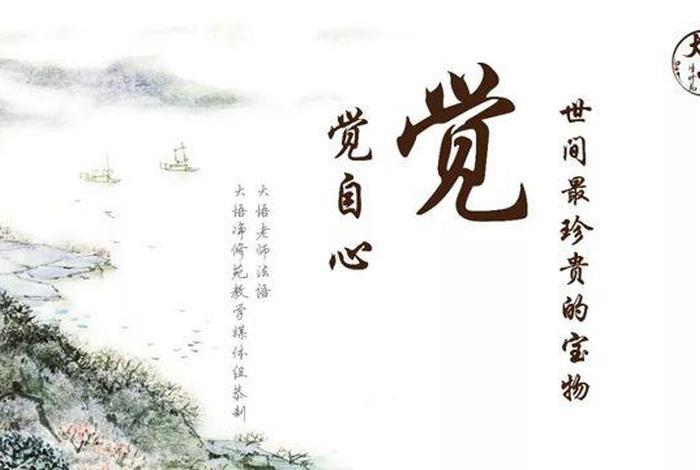 世间最珍贵的宝物
觉
觉自心
大悟老师法语
大悟净修苑教学媒体组恭制